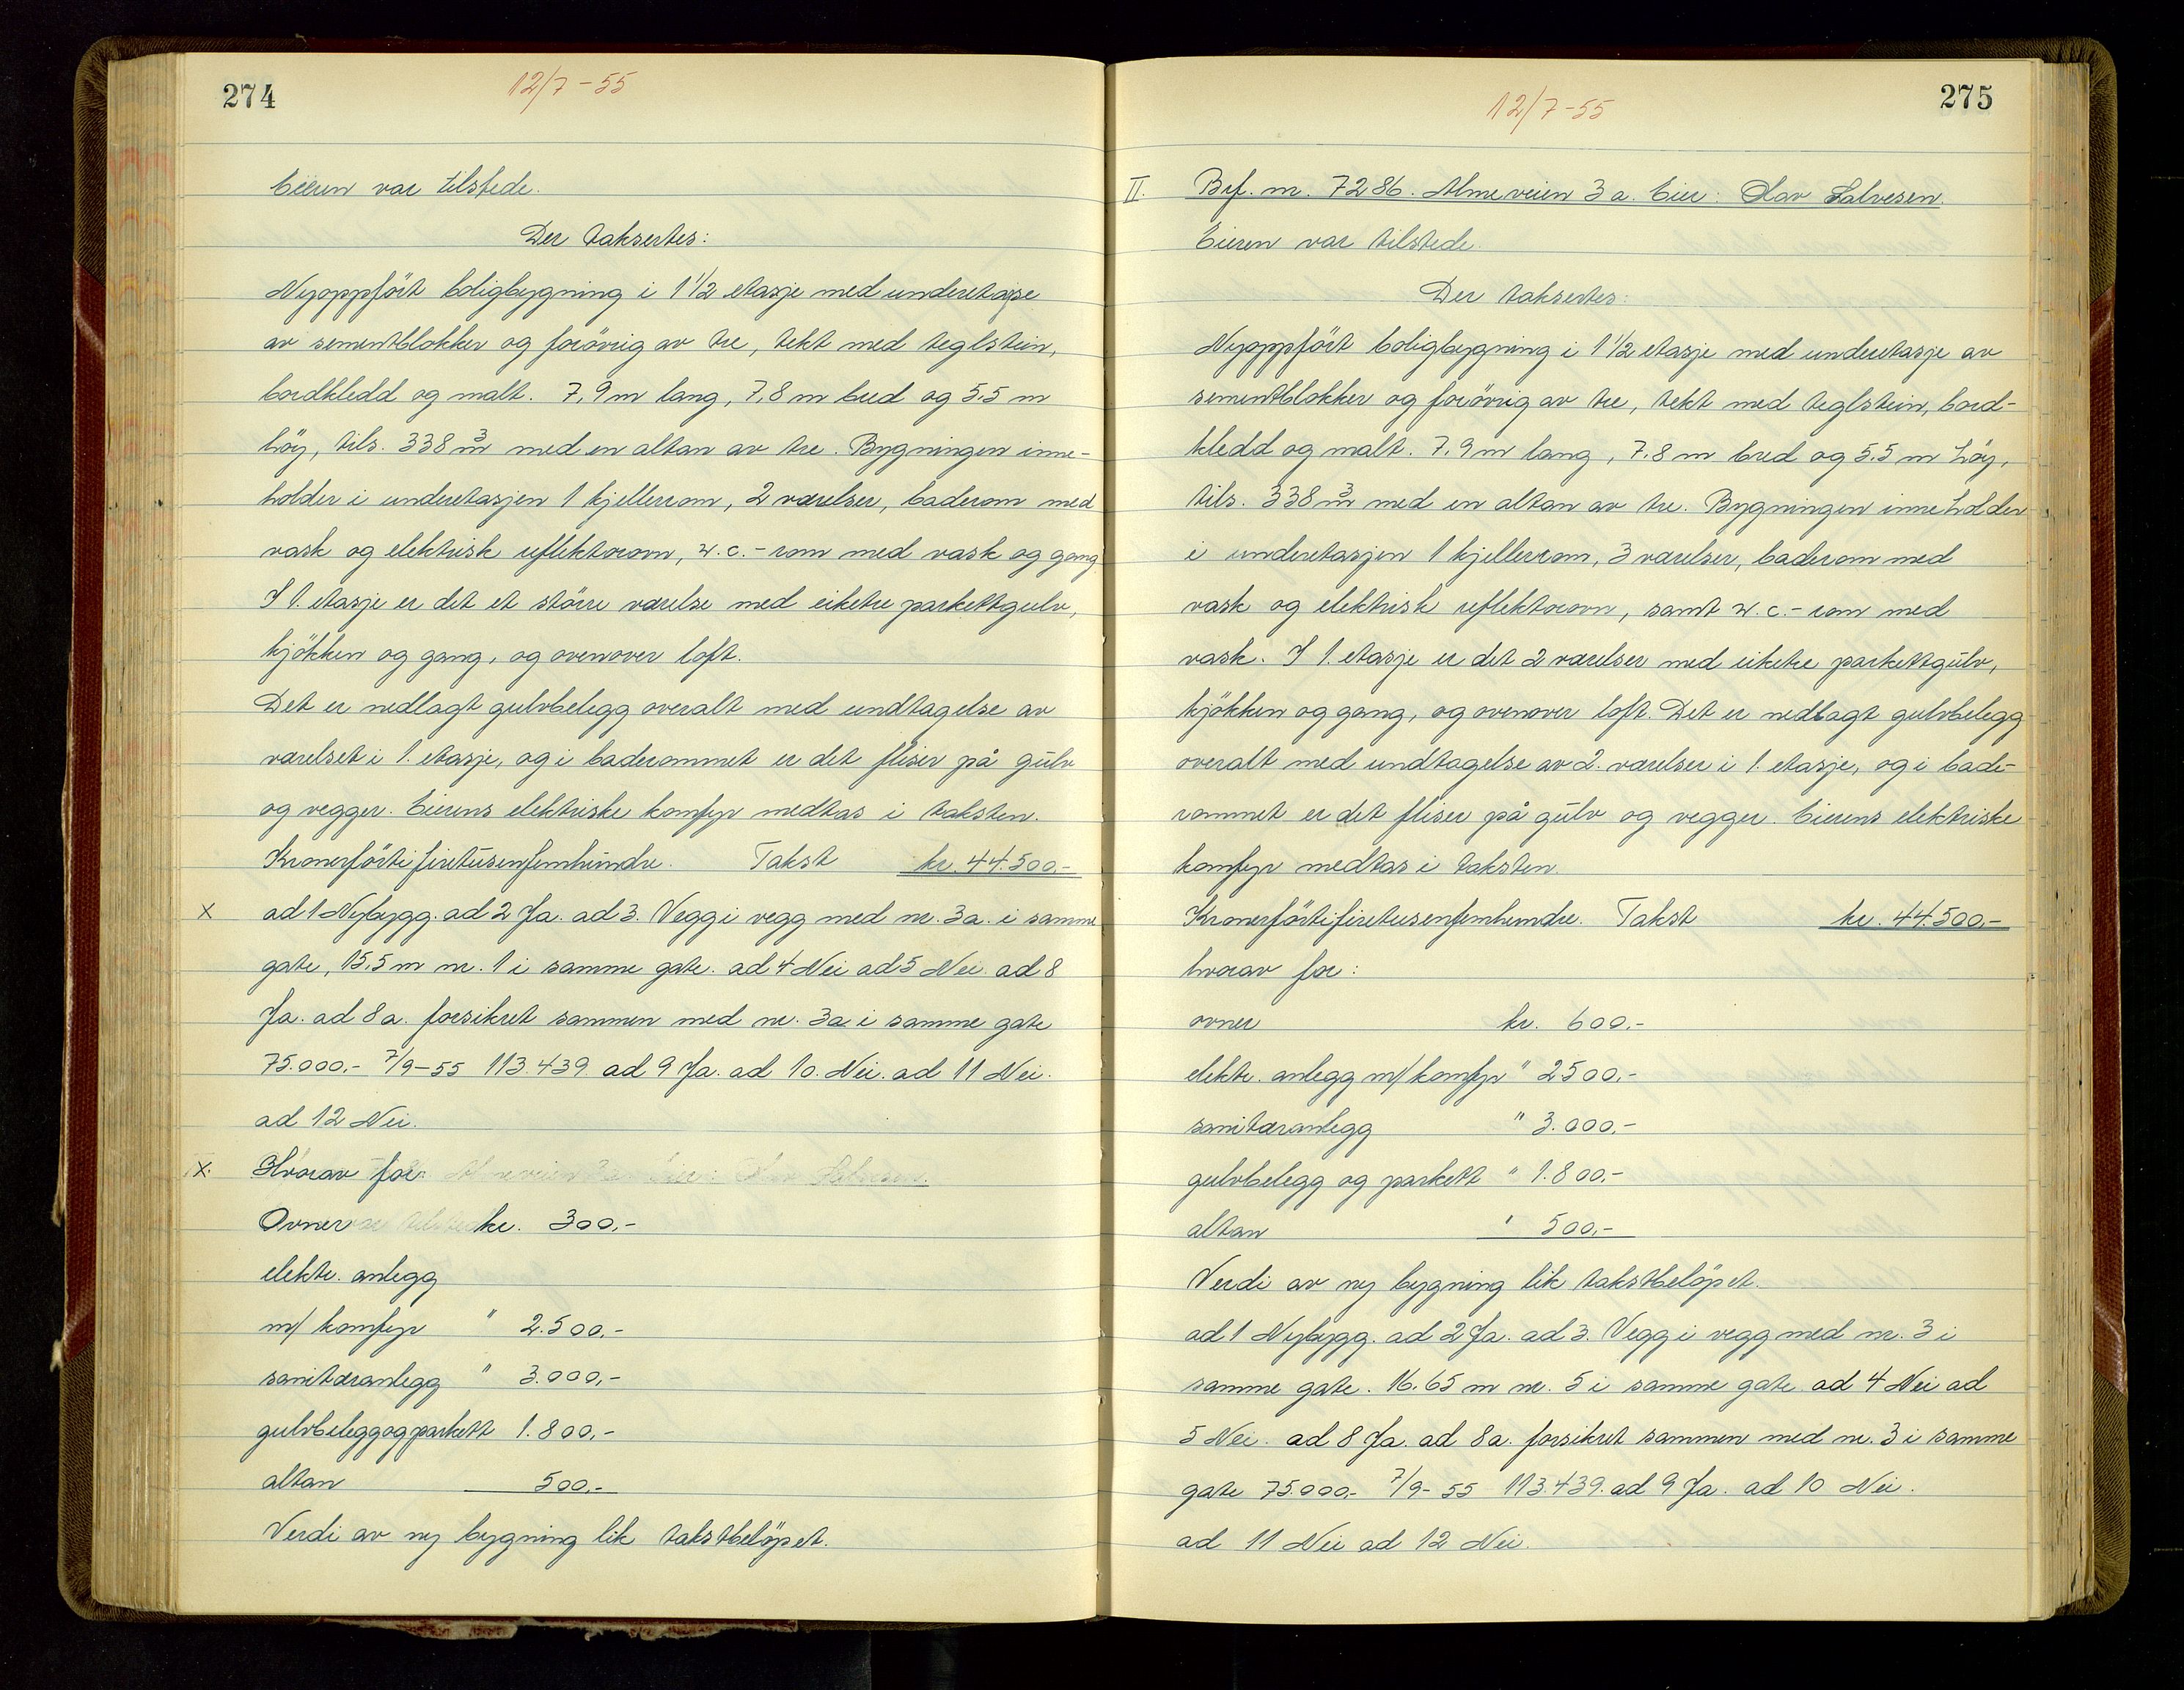 274
12/7-55
Eieren var tilstede.
Der taksertes:
Nyoppført boligbygning i 1 1/2 etasje med underetasje
av sementblokker og forøvrig av tre, tekt med teglstein,
bordkledd og malt. 7,9 m lang, 7,8 m bred og 5,5 m
høy, tils. 338 m³ med en altan av tre. Bygningen inne-
holder i underetasjen 1 kjellerrom, 2 værelser, baderom med
vask og elektrisk reflektorovn, w.c.-rom med vask og gang
I 1. etasje er det et større værelse med eiketre parkettgulv,
kjøkken og gang, og ovenover loft.
Det er nedlagt gulvbelegg overalt med undtagelse av
værelset i 1. etasje, og i baderommet er det fliser på gulv
og vegger. Eierens elektriske komfyr medtas i taksten.
Kronerførtifiretusenfemhundre. Takst kr. 44.500.-
x ad 1 Nybygg. ad 2 Ja. ad 3. Vegg i vegg med nr. 3a. i samme
gate, 15,5 m nr. 1 i samme gate. ad 4 Nei ad 5 Nei. ad 8
Ja. ad 8a. forsikret sammen med nr. 3a i samme gate
75.000.- 7/9-55 113.439. ad 9 Ja. ad 10. Nei. ad 11 Nei.
ad 12 Nei.
x. Hvorav for: Almeveien 3a Eier: Olav Salvesen.
Ovner kr. 300,-
elektr. anlegg
m/ komfyr " 2.500,-
sanitæranlegg " 3.000,-
gulvbelegg og parkett 1.800,-
altan 500,-
Verdi av ny bygning lik takstbeløpet.
275
12/7-55
II. Brf. nr. 7286. Almeveien 3a. Eier: Olav Salvesen.
Eieren var tilstede.
Der taksertes:
Nyoppført boligbygning i 1 1/2 etasje med underetasje av
sementblokker og forøvrig av tre, tekt med teglstein, bord-
kledd og malt. 7,9 m lang, 7,8 m bred og 5,5 m høy,
tils. 338 m³ med en altan av tre. Bygningen inneholder
i underetasjen 1 kjellerrom, 3 værelser, baderom med
vask og elektrisk reflektorovn, samt w.c.-rom med
vask. I 1. etasje er det 2 værelser med eiketre parkettgulv,
kjøkken og gang, og ovenover loft. Det er nedlagt gulvbelegg
overalt med undtagelse av 2. værelser i 1. etasje, og i bade-
rommet er det fliser på gulv og vegger. Eierens elektriske
komfyr medtas i taksten.
Kronerførtifiretusenfemhundre. Takst kr. 44.500,-
hvorav for:
ovner kr. 600.-
elektr. anlegg m/ komfyr " 2500,-
sanitæranlegg " 3.000,-
gulvbelegg og parkett " 1.800,-
altan " 500,-
Verdi av ny bygning lik takstbeløpet.
ad 1 Nybygg. ad 2 Ja. ad 3. Vegg i vegg med nr. 3 i
samme gate. 16.65 m nr. 5 i samme gate. ad 4 Nei ad
5 Nei. ad 8 Ja. ad 8a. forsikret sammen med nr. 3 i samme
gate 75.000,- 7/9-55 113.439. ad 9 Ja. ad 10 Nei.
ad 11 Nei ad 12 Nei.